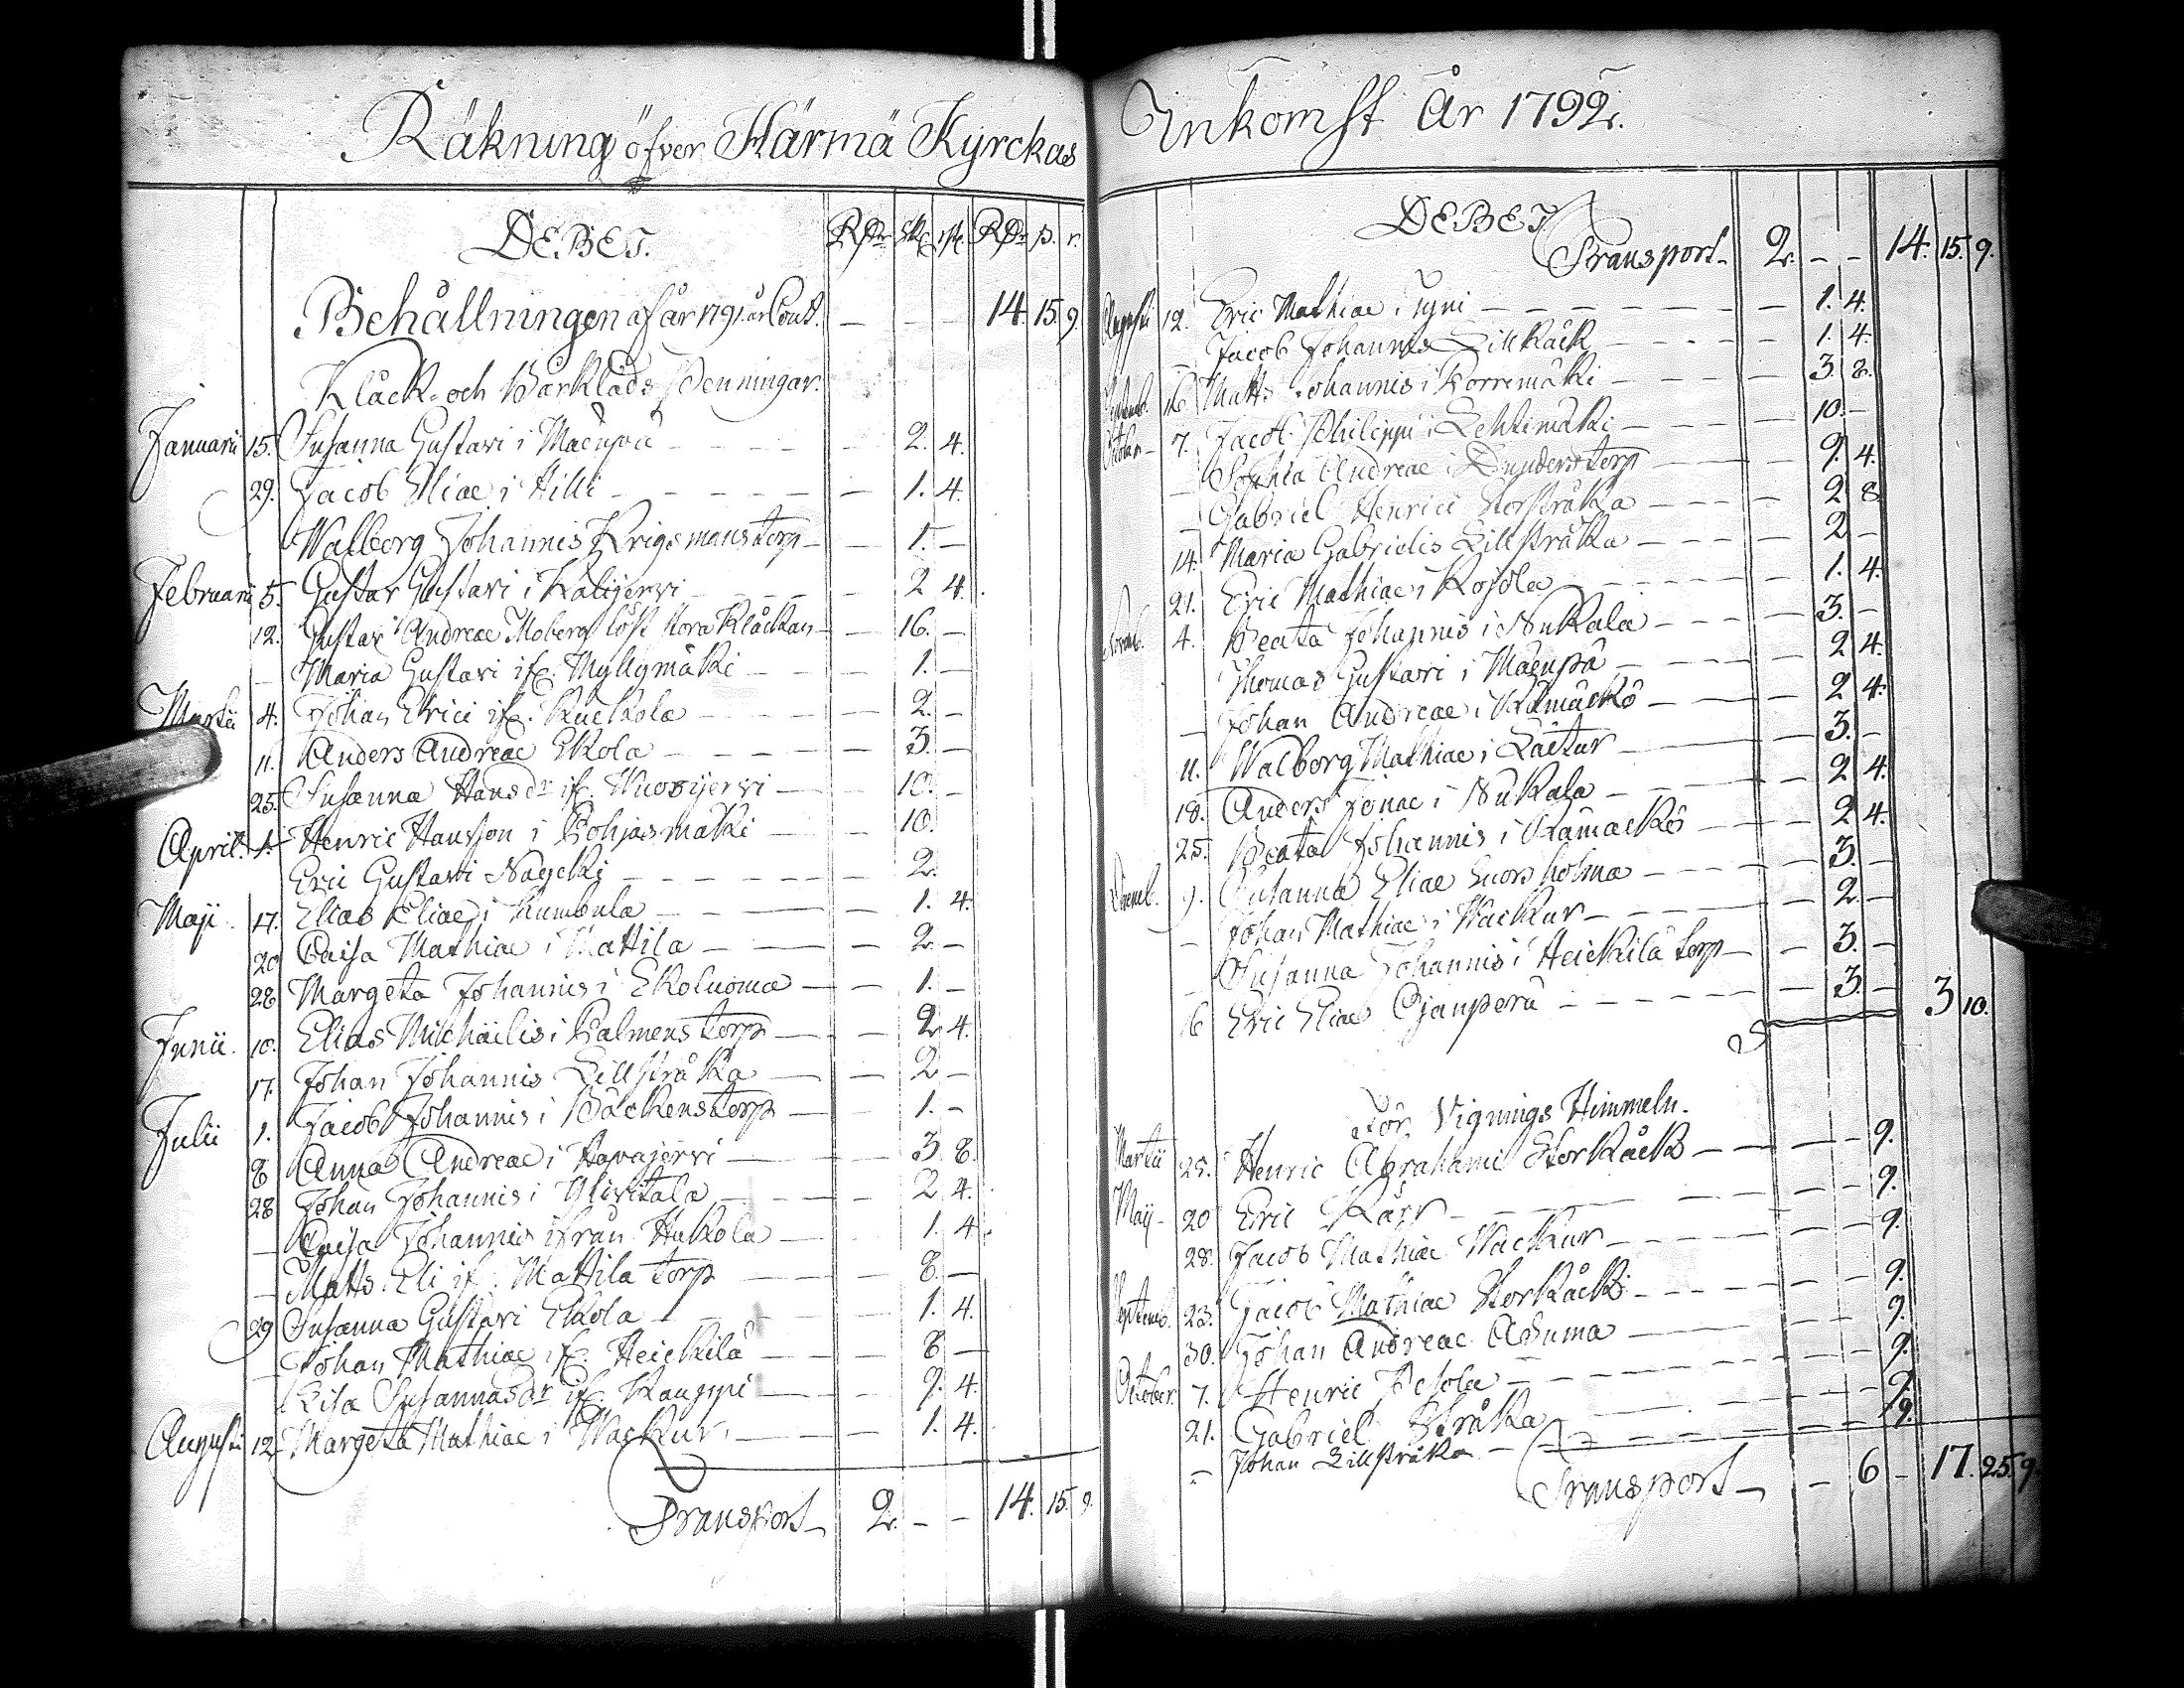 Räkning öfver Härmä Kyrckas
DEBET. RDr Sk. rst. RDr ß. r.
Behållningen af år 1791 är Cont. — — — 14. 15. 9.
Klåck- och Bårkläds Penningar.
Januarii 15. Susanna Gustavi i Mäenpä — 2. 4.
29. Jacob Eliae i Hilli — 1. 4.
Walborg Johannis Krigsmans torp — 1. —
Februarii 5. Gustav Gustavi i Kalijervi — 2 4.
12. Gustav Andreae Moberg löst stora Klåckan — 16. —
— Maria Gustavi if. Myllymäki — 1. —
Martii 4. Johan Erici if. Kuckola — 2. —
11. Anders Andreae Ekola — 3. —
25. Susanna Hansdr if. Wuosijervi — 10. —
April. 1. Henric Hansson i Pohjasmäki — 10.
Eric Gustavi Nagcki — 2.
Maji 17. Elias Eliae i Kumbula — 1. 4.
20 Caisa Mathiae i Mattila — 2. —
28 Margeta Johannis i Ekoluoma — 1. —
Junii. 10. Elias Michaelis i Palmens torp — 2. 4.
17. Johan Johannis Lillstråka — 2 —
Julii 1. Jacob Johannis i Backens torp — 1. —
8 Anna Andreae i Havajervi — 3. 8.
28 Johan Johannis i Ylivitala — 2. 4.
— Caisa Johannis ifrån Hukola — 1. 4.
— Matts Eli if. Mattila torp — 8. —
29 Susanna Gustavi Ekola — 1. 4.
— Johan Mathiae if. Heickilä — 8 —
Lisa Susannasdr if. Kauppi — 9. 4.
Augusti 12. Margeta Mathiae i Wackur — 1. 4.
Transport — 2. — — 14. 15. 9.
Inkomst År 1792.
DEBET
Transport — 2. — — 14. 15. 9.
Augusti 12. Eric Mathiae i Tyni — 1. 4.
— Jacob Johannis Lillkåck — 1. 4.
Septemb. 16 Matts Johannis i Porremäki — 3. 8.
October — 7. Jacob Philippi i Lehtimäki — 10. —
— Sophia Andreae i Dunders torp — 9. 4.
— Gabriel Henrici Storstråka — 2. 8
14. Maria Gabrielis Lillstråka — 2 —
21. Eric Mathiae i Kojola — 1. 4.
Novemb. 4. Beata Johannis i Nukala — 3. —
Thomas Gustavi i Mäenpä — 2 4.
— Johan Andreae i Rämäckö — 2 4.
11. Walborg Mathiae i Laitur — 3. —
18. Anders Jonae i Nukala — 2 4.
25. Beata Johannis i Rämäckö — 2 4.
Decemb. 9. Susanna Eliae Luorsholma — 3. —
— Johan Mathiae i Wackur — 2. —
— Susanna Johannis i Heickilä torp — 3. —
16 Eric Eliae Ojanperä — 3. — 3 10.
För Vignings Himmeln.
Martii 25. Henric Abrahami Storkåck — 9.
Maij — 20 Eric Kärr — 9.
28. Jacob Mathiae Wackur — 9.
Septemb. 23. Jacob Mathiae Storkåck — 9.
30. Johan Andreae Asuma — 9.
October. 7. Henric Pesola — 9.
21. Gabriel Stråka — 9.
— Johan Lillstråka — 9.
Transport — — 6 — 17. 25. 9